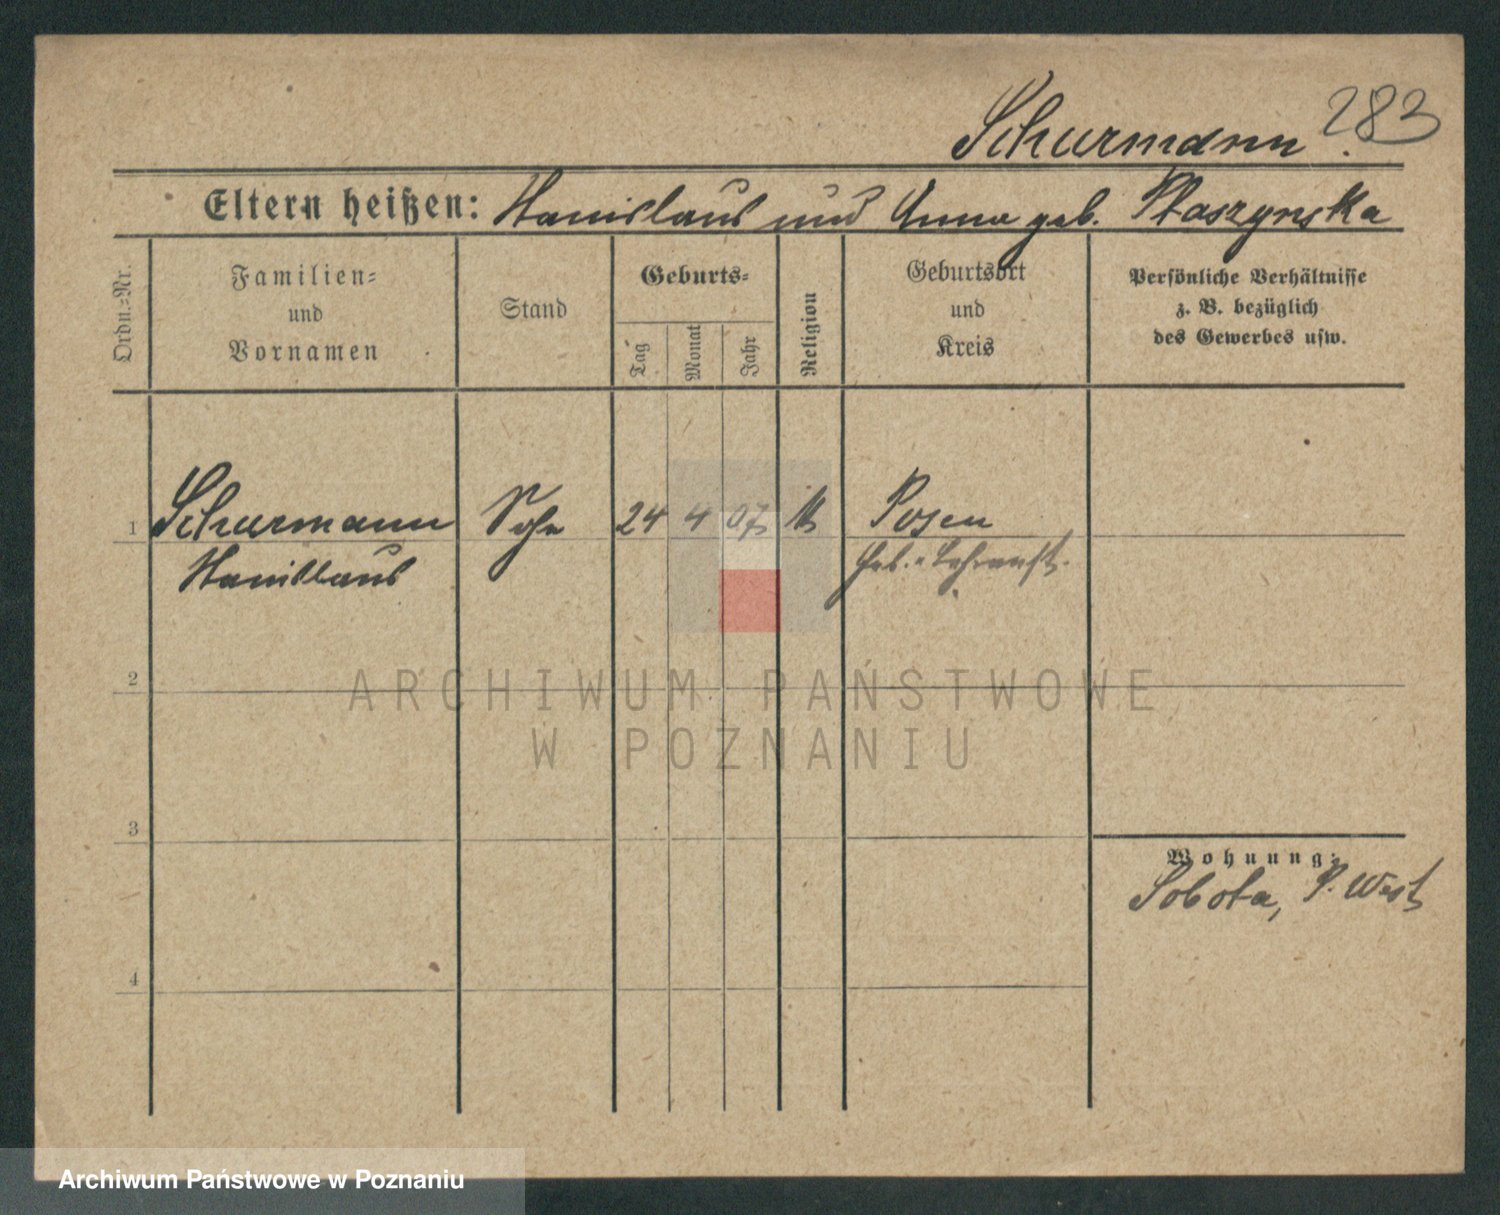 Schurmann. 283
Eltern heißen: Stanislaus und Anna geb. Ptaszynska
Ordn.-Nr.
Familien-
und
Vornamen
Stand
Geburts-
Tag
Monat
Jahr
Religion
Geburtsort
und
Kreis
Persönliche Verhältnisse
z. B. bezüglich
des Gewerbes usw.
1 Schurmann Sohn 24 4 07 k Posen
Stanislaus Geb. u.
2
ARCHIWUM PAŃSTWOWE
W POZNANIU
3
Wohnung:
Sobota, P. West
4
Archiwum Państwowe w Poznaniu